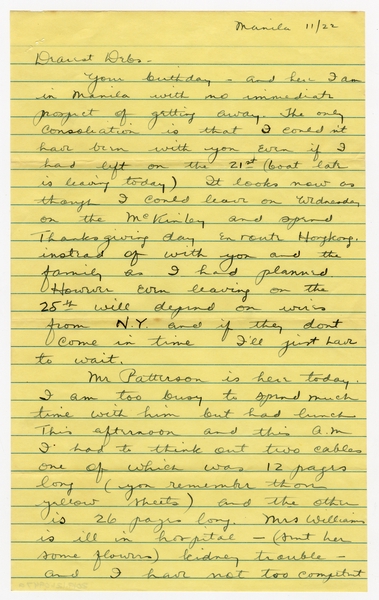 Manila 11/22
Dearest Debs -
Your birthday - and here I am
in Manila with no immediate
prospect of getting away. The only
consolation is that I couldn't
have been with you even if I
had left on the 21st (boat late
is leaving today) It looks now as
though I could leave on Wednesday
on the McKinley and spend
Thanksgiving day en route Hongkong.
instead of with you and the
family as I had planned
However even leaving on the
25th will depend on wires
from N.Y. and if they dont
come in time I'll just have
to wait.
Mr Patterson is here today.
I am too busy to spend much
time with him but had lunch
This afternoon and this A.M
I had to think out two cables
one of which was 12 pages
long (you remember those
yellow sheets) and the other
is 26 pages long. Mrs Williams
is ill in hospital - (sent her
some flowers) kidney trouble -
and I have not too competent